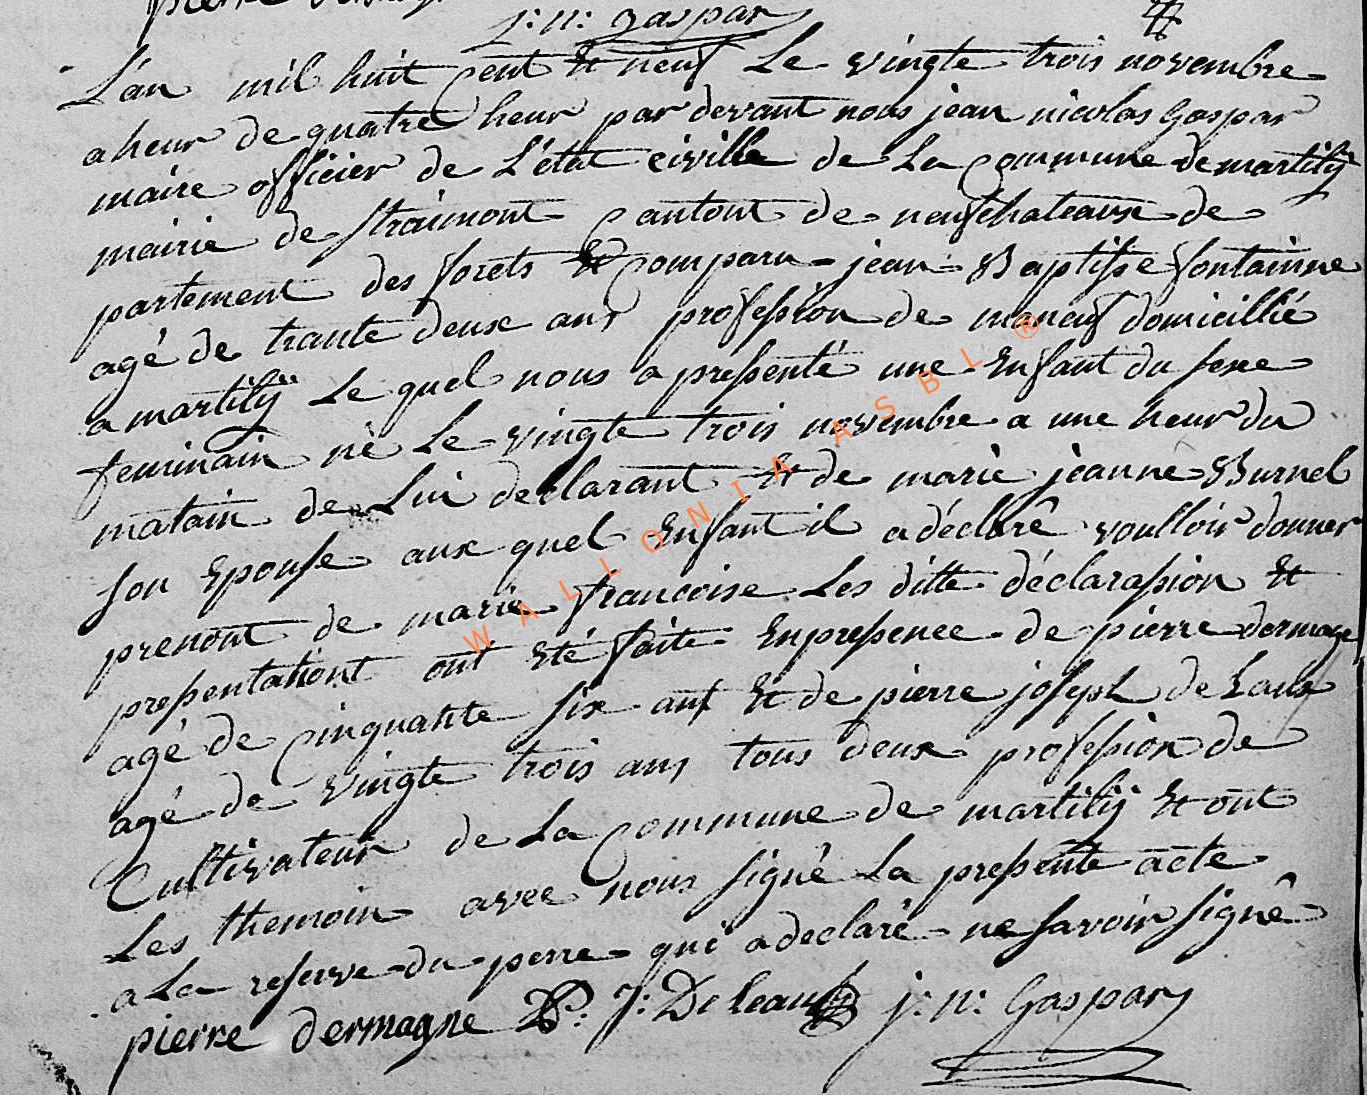 pierre dermagne
j: n: gaspar
L'an mil huit cent et neuf Le vingte trois novembre
a heur de quatre heur par devant nous jean nicolas Gaspar
maire officier de L'état civille de La commune de martilij
mairie de straimont cantont de neufchateaux de
partement des forets et comparu jean Baptisse fontainne
agé de trante deux ans profession de maneuf domicillié
a martilÿ Le quel nous a pressenté une Enfant du sexe
feminain né Le vingte trois novembre a une heur du
matain de Lui declarant et de marie jeanne Burnel
son Epouse aux quel Enfant il a déclaré voulloir donner
prenont de marie francoise Les ditte déclarasion et
pressentationt ont Eté faite En pressence de pierre dermagne
agé de cinquante six ans Et de pierre joseph de Laux
agé de vingte trois ans tous deux profession de
Cultivateur de La commune de martilij Et ont
Les themoin avec nous signé La pressente acte
a La reserve du perre qui a declaré ne savoir signé
pierre dermagne P: J: De Leau j: n: Gaspar
WALLONIA ASBL ®